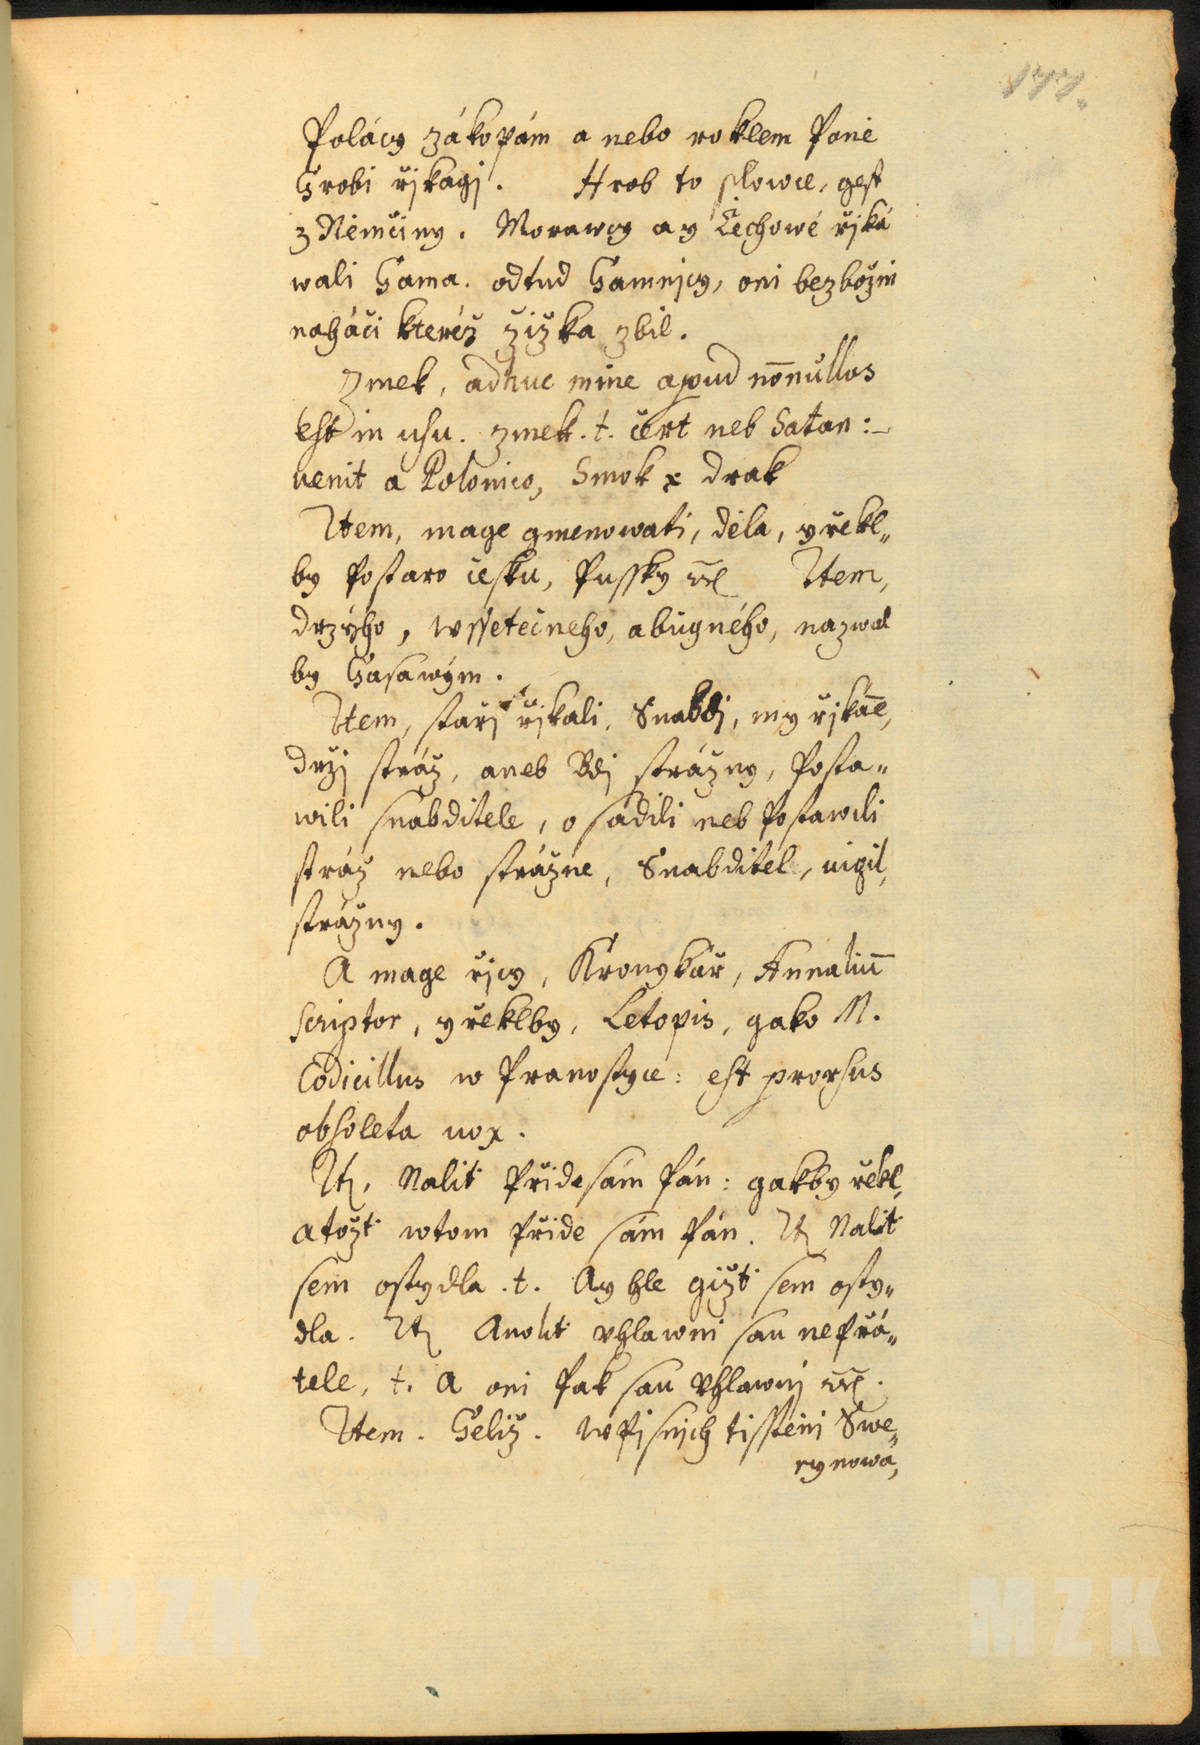 177.
Polácy zákopám a nebo roklem Poňe
Grobi řjkagj. Hrob to slowce, gest
z Němčiny. Morawcy a y Čechowé řjká
wali Gama. odtud Gamnjcy, oni bezbožni
naháči kteréž Žižka zbil.
Zmek, adhuc mine apud no̅nullos
est in usu. zmek .t. čert neb Satan:
uenit a Polonico, Smok x drak
Item, mage gmenowati, děla, y řekl„
by Postaro česku, Pussky
Item,
drzýho, wssetečneho, a bugného, nazwal
by Gasawým.
Item, stařj řjkali, Snabdj, my řjkáme,
drzj stráž, aneb Bdj strážny, Posta„
wili snabditele, osadili neb Postawili
stráž nebo strážne, Snabditel, uigil,
strážny.
A mage řjcy, Kronykář, Annaliu̅
scriptor, y řeklby, Letopis, gako M.
Codicillus w Pranostyce: est prorsus
obsoleta uox.
It, Nalit Přide sám Pán: gakby řekl,
atožt wtom Přide sám Pán. It Nalit
sem ostydla .t. Ay hle gižt sem osty„
dla. It Anolit vhlawni sau nePřá„
tele, t. A oni Pak sau Vhlawnj
Item. Geliž. W Pjsnjch tisstěni Swe„
rynowa,
MZK
MZK